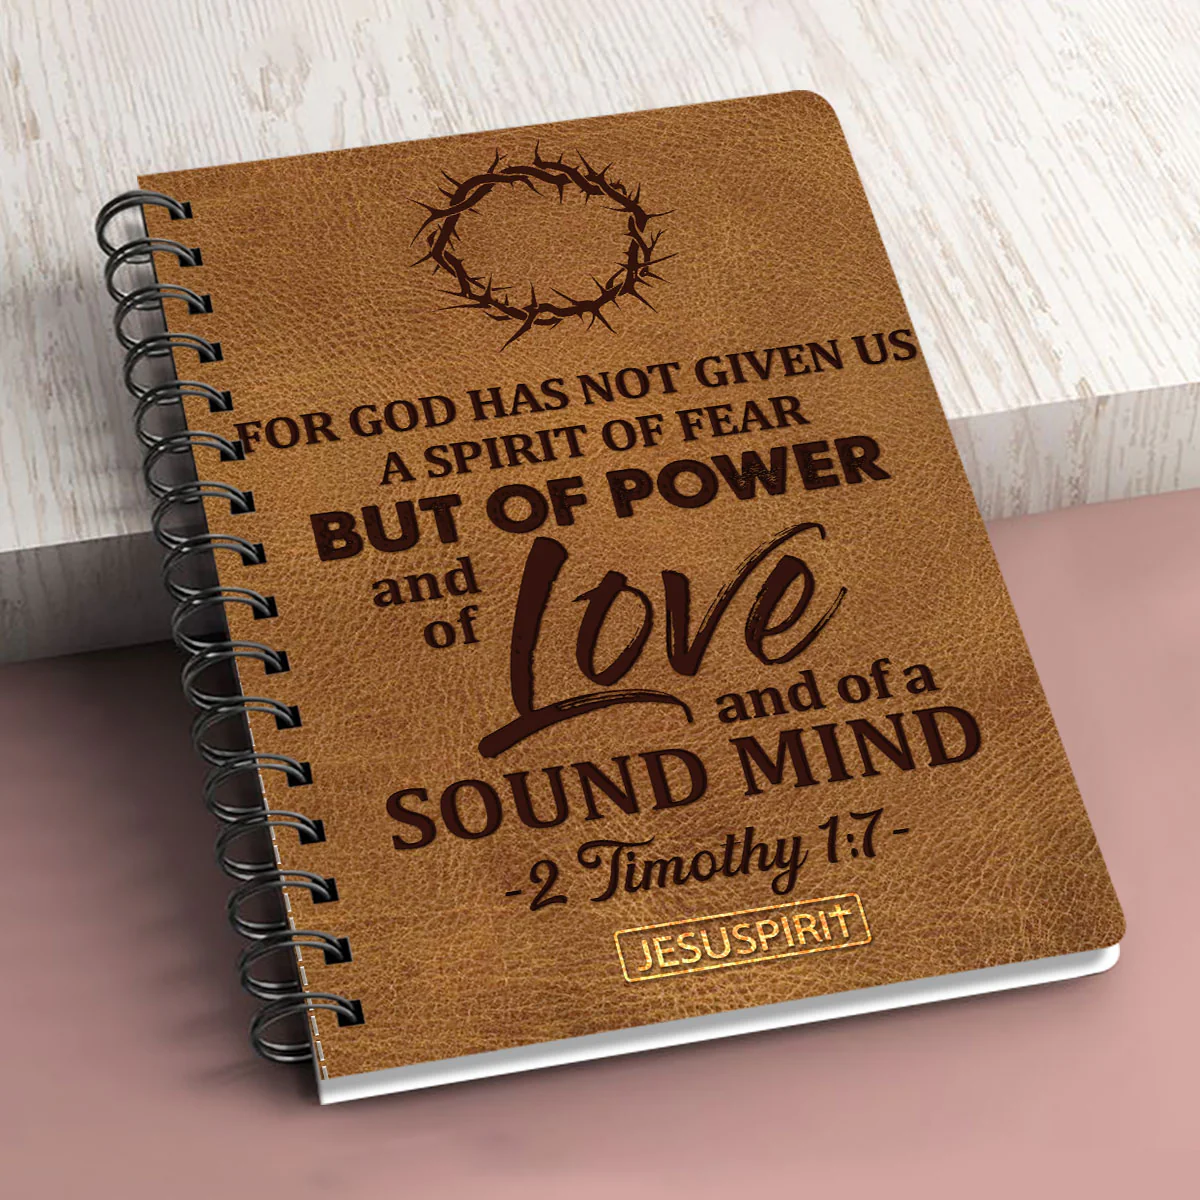 FOR GOD HAS NOT GIVEN US
A SPIRIT OF FEAR
BUT OF POWER
and
of
Love
and of a
SOUND MIND
-2 Timothy 1:7-
JESUSPIRIT